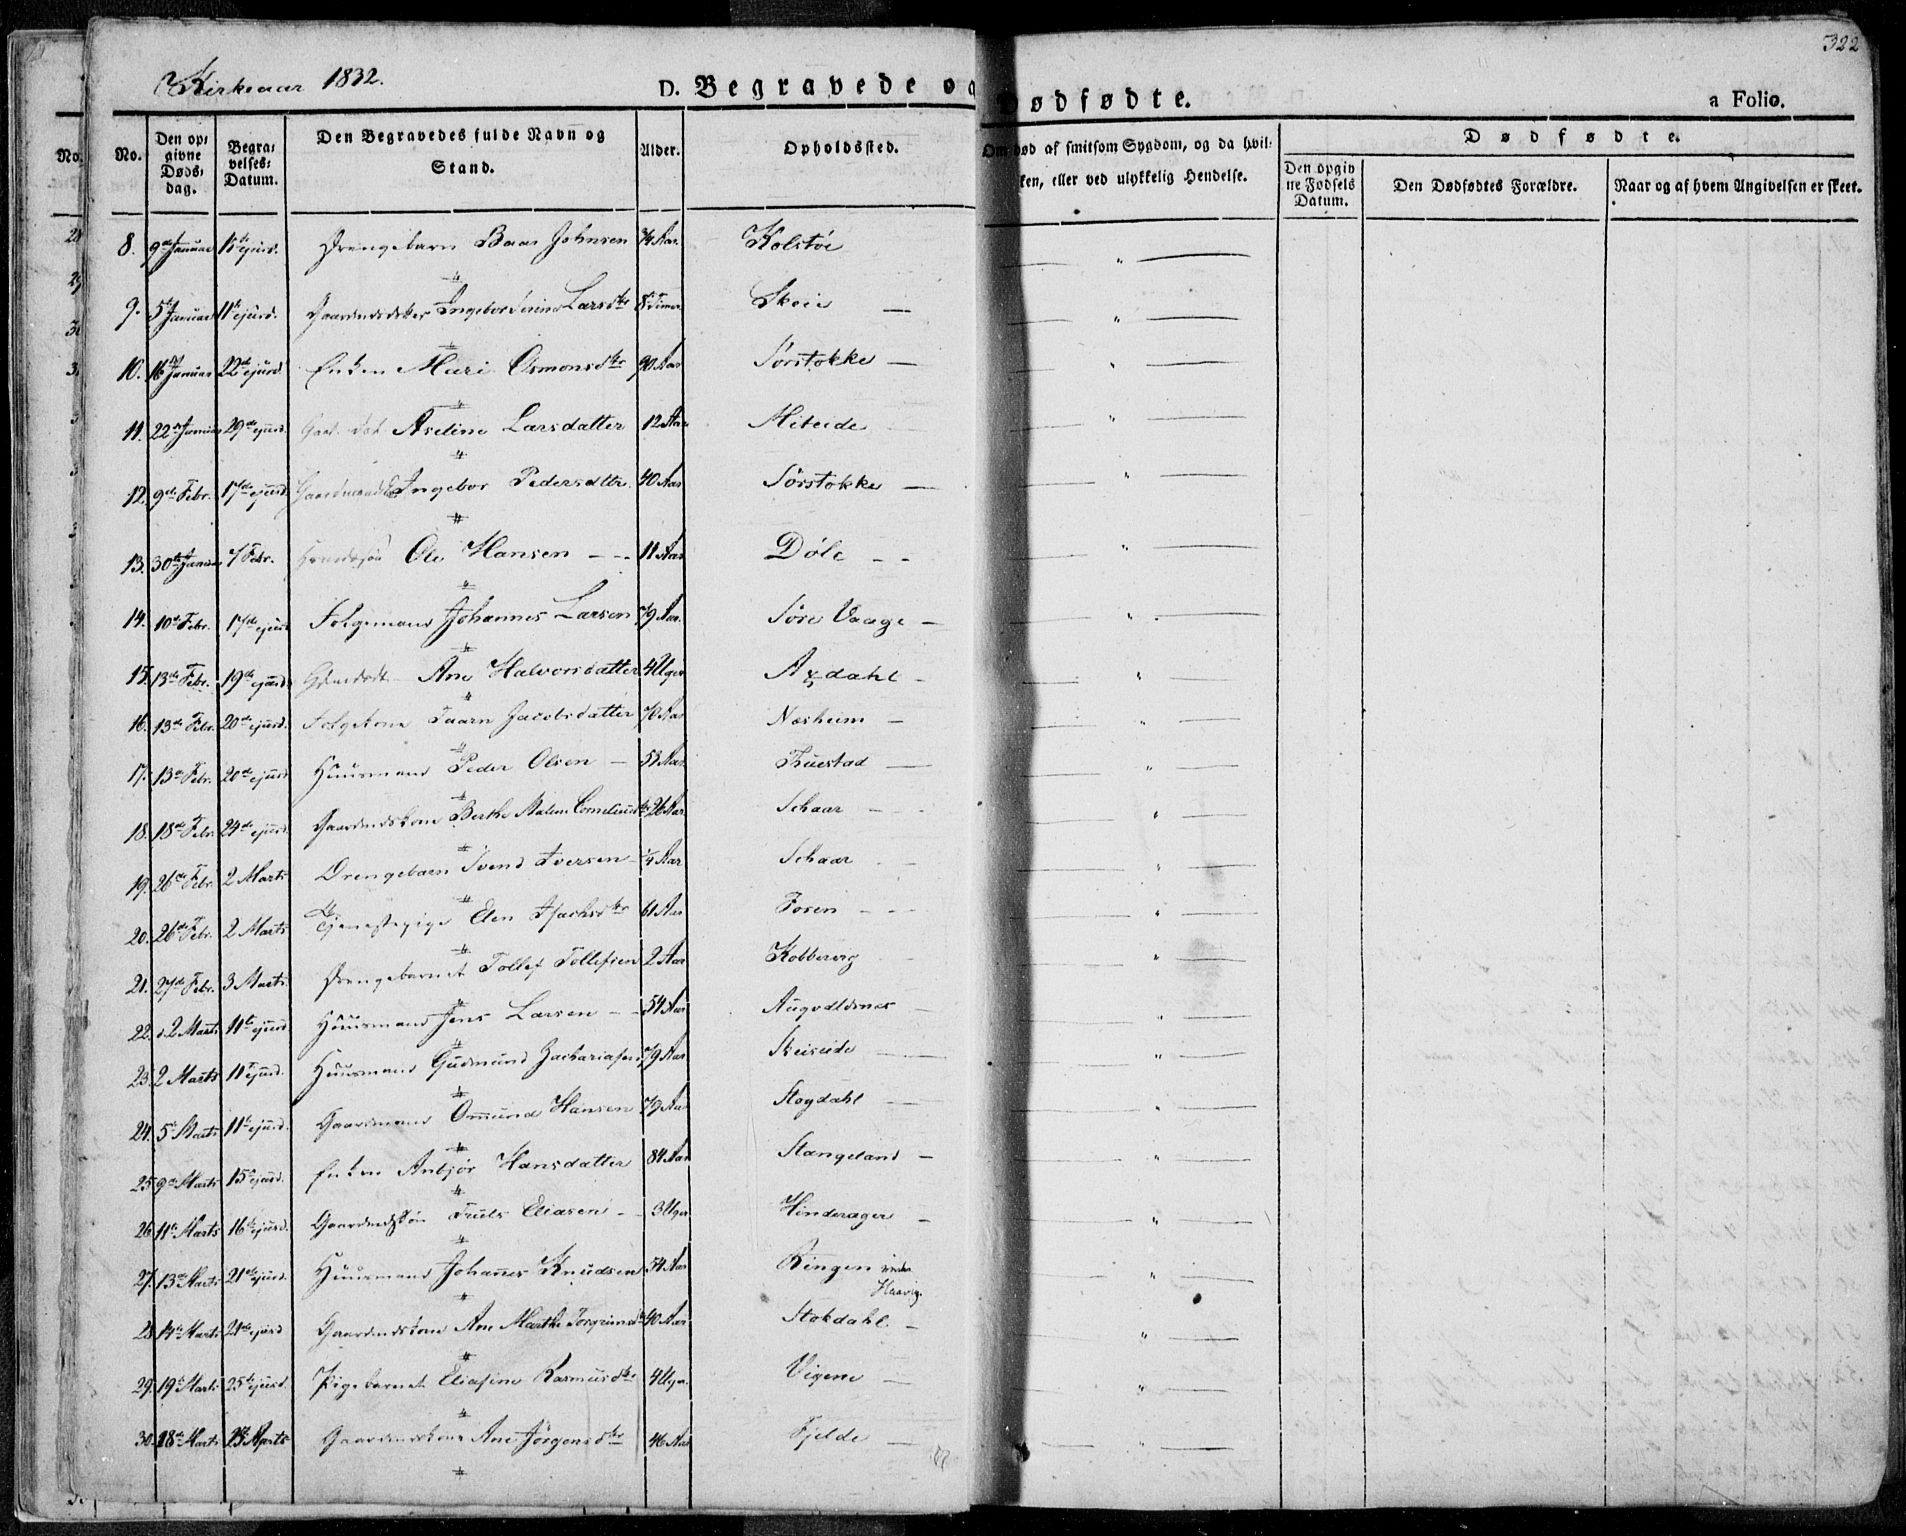 322
Kirkeaar 1832.
D. Begravede og Dødfødte.
a Folio.
No.
Den op-givne Døds-dag.
Begra-velses-Datum.
Den Begravedes fulde Navn og Stand.
Alder.
Opholdssted.
Om død af smitsom Sygdom, og da hvil-ken, eller ved ulykkelig Hendelse.
Dødfødte.
Den opgivne Fødsels Datum.
Den Dødfødtes Forældre.
Naar og af hvem Angivelsen er skeet.
8. 9de Januar ejusd. Drengebarn Baar Johnsen 3/4 Aar Kolstøe "
9. 5te Januar 11te ejusd. Ingebor Serine Larsdtr 8 Timer Skeie "
10. 16 Januar 22de ejusd. Enken Mari Osmonsdtr 90 Aar Sørstokke "
11. 22de Januar 29de ejusd. Aseline Larsdatter 12 Aar "
12. 9de Febr. 17de ejusd. Ingebor Pedersdtr. 40 Aar Sørstokke "
13. 30te Januar 7 Febr. Ole Hansen 11 Aar Døle "
14. 10de Febr. 17de ejusd. Folgemand Johannes Larsen 79 Aar. Søre Vaage "
15. 13de Febr. 19de ejusd. Ane Halvorsdatter 4 Uger Axdahl "
16. 13de Febr. 20de ejusd. Folgekone Taarn Jacobsdatter 70 Aar Næsheim "
17. 13de Febr. 20de ejusd. Huusmand Peder Olsen Aar Truestad "
18. 18de Febr. 24de ejusd. Gaardmdskone Berthe Malene Corneliusdtr 26 Aar Schaar "
19. 26de Febr. 2 Marts Drengebarn Svend Iversen 1/4 Aar Schaar "
20. 26de Febr. 2 Marts Tjenestepige Elen Isachsdtr 61 Aar Fosen "
21. 27de Febr. 3 Marts. Drengebarnet Tollef Tollefsen 2 Aar Kobbervig "
22. 2 Marts 11te ejusd. Huusmand Jens Larsen 54 Aar Augvaldsnes "
23. 2 Marts 11te ejusd. Huusmand Gudmund Zachariasen 79 Aar Skeiseide "
24. 5te Marts 11te ejusd. Gaardmand Ommund Hansen 79 Aar Stogdahl "
25. 9de Marts 15te ejusd. Enken Anbjør Hansdatter 84 Aar Stangeland "
26. 11te Marts 16te ejusd. Gaardmdssøn Truls Eliasen 3 Uger Hinderager "
27. 13de Marts 21de ejusd. Huusmand Johannes Knudsen 54 Aar Ringen under Haavig. "
28. 14de Marts 21de ejusd Gaardmdskone Ane Marthe Torgrimsdtr 40 Aar Stokdahl "
29. 19de Marts 25de ejusd. Pigebarnet Eliasine Rasmusdtr 4 Uger. Vigene "
30. 18de Marts Marts Gaardmdskone Ane Jörgensdtr 46 Aar Fjelde "